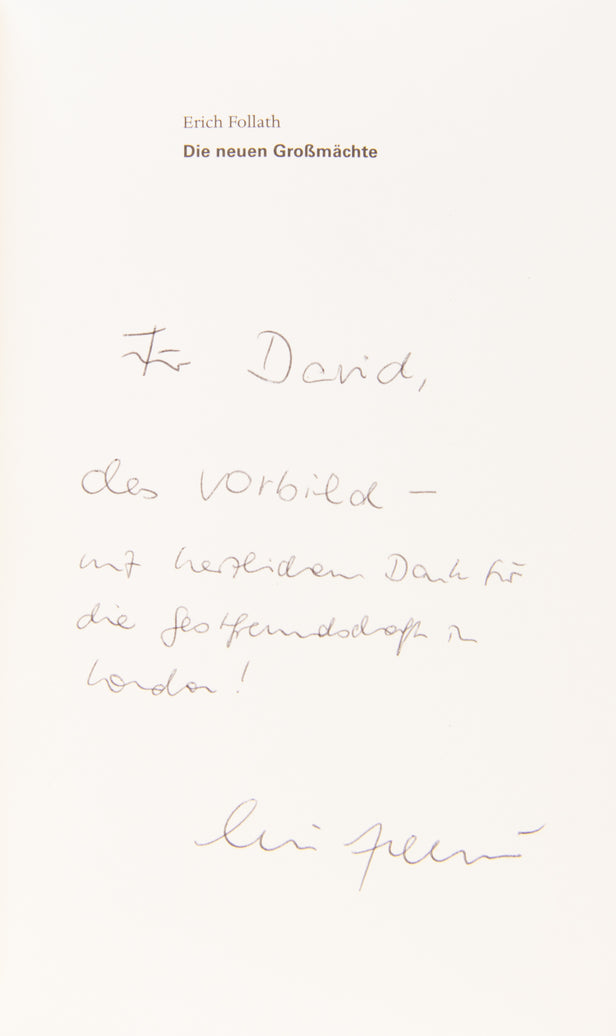 Erich Follath
Die neuen Großmächte
Für David,
das Vorbild –
mit herzlichem Dank für
die Gastfreundschaft in
London!